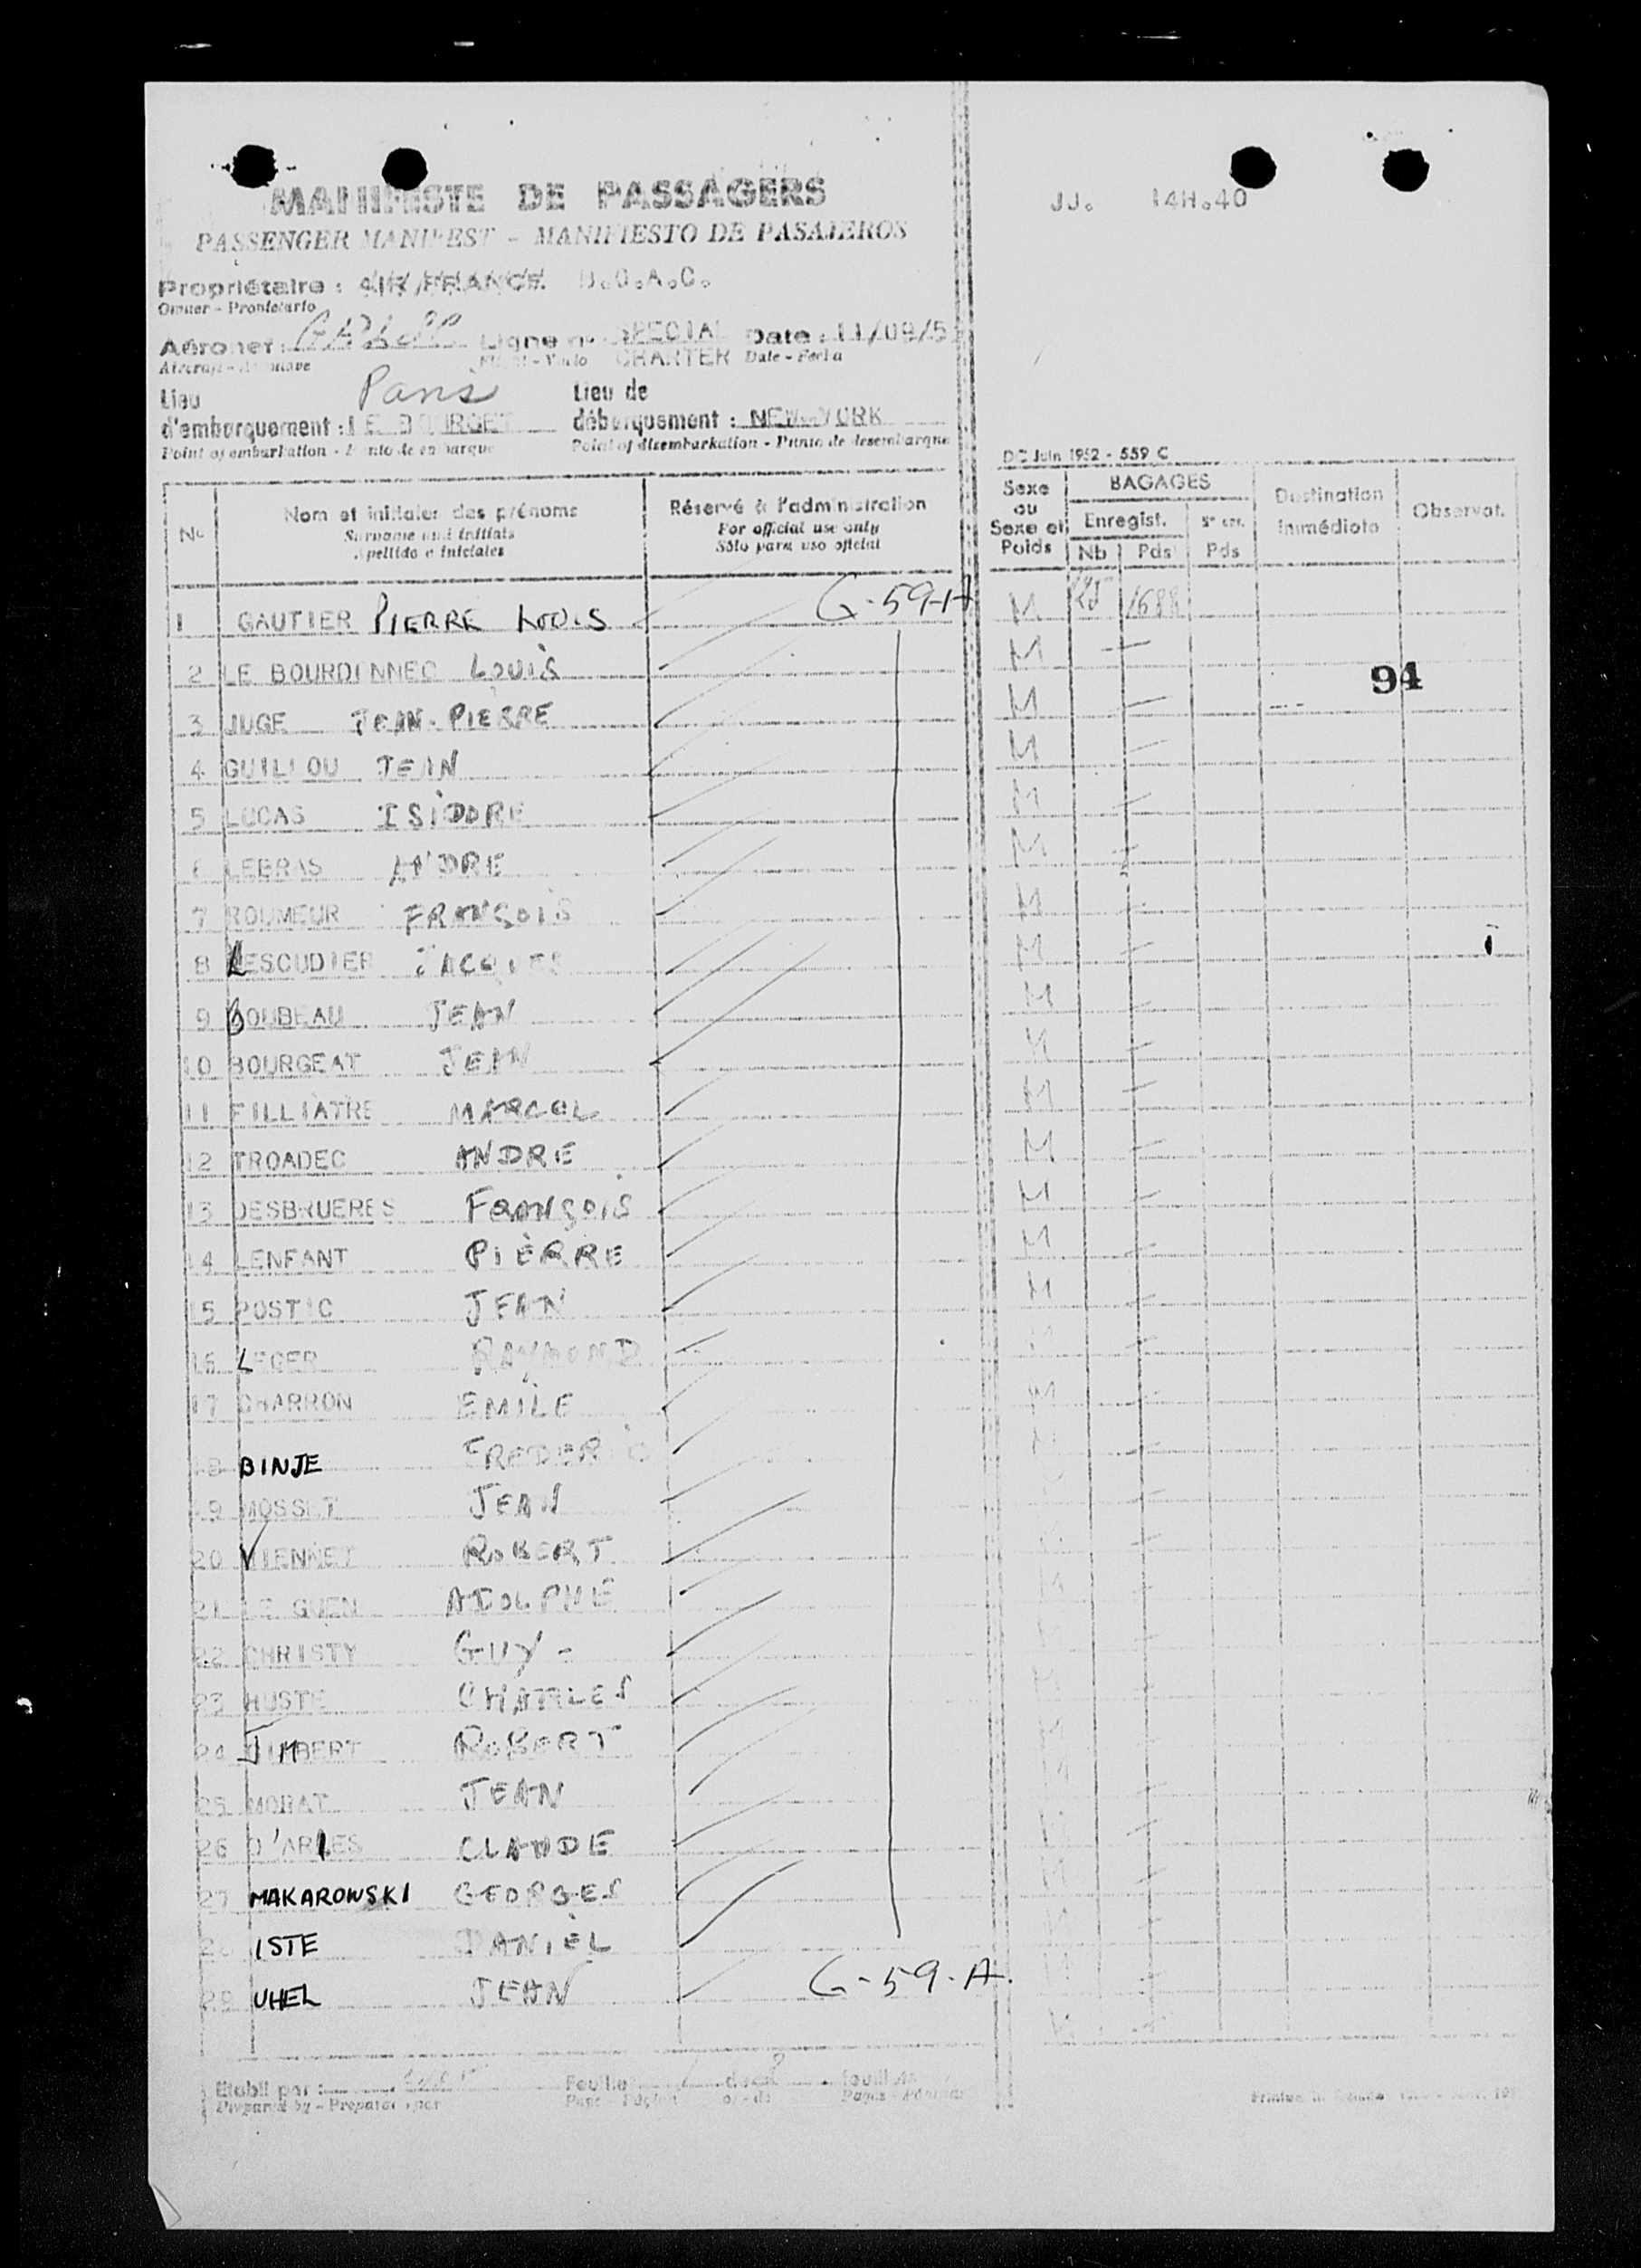 MANIFESTE DE PASSAGERS
PASSENGER MANIFEST - MANIFIESTO DE PASAJEROS
JJ. 14H.40
Propriétaire : AIR FRANCE B.O.A.C.
Owner - Propietario
Aéronef : Ligne n° SPECIAL CHARTER Date : 11/09/5
Aircraft - Date - Fecha
Paris
Lieu d'embarquement : LE BOURGET
Point of embarkation - Punto de embarque
Lieu de débarquement : NEW-YORK
Point of disembarkation - Punto de desembarque
DC Juin 1952 - 559 C
N° Nom et initiales des prénoms
Surname and initials
Apellido e iniciales
Réservé à l'administration
For official use only
Sólo para uso oficial
Sexe ou Sexe et Poids
BAGAGES
Enregist.
Nb Pds Pds
Destination immédiate
Observat.
1 GAUTIER PIERRE LOUIS G-59-A M
2 LE BOURDINNEC LOUIS M
94
3 JUGE JEAN-PIERRE M
4 GUILLOU JEAN M
5 LUCAS ISIDORE M
6 LEBRAS ANDRE M
7 ROUMEUR FRANÇOIS M
8 LESCUDIER JACQUES M
9 BOUBEAU JEAN M
10 BOURGEAT JEAN M
11 FILLIATRE MARCEL M
12 TROADEC ANDRE M
13 DESBRUERES FRANÇOIS M
14 LENFANT PIERRE M
15 POSTIC JEAN M
16 LEGER RAYMOND M
17 CHARRON EMILE M
18 BINJE FREDERIC M
19 MOSSET JEAN
20 VIENNET ROBERT
21 LE GUEN ADOLPHE M
22 CHRISTY GUY -
23 HUSTE CHARLES M
24 JUMBERT ROBERT M
25 MORAT JEAN M
26 D'ARLES CLAUDE M
27 MAKAROWSKI GEORGES M
28 ISTE DANIEL M
29 UHEL JEAN G-59-A. M
Etabli par :
Prepared by - Preparado por
Feuille 1 de feuilles
Page - Página of - de Pages - Páginas